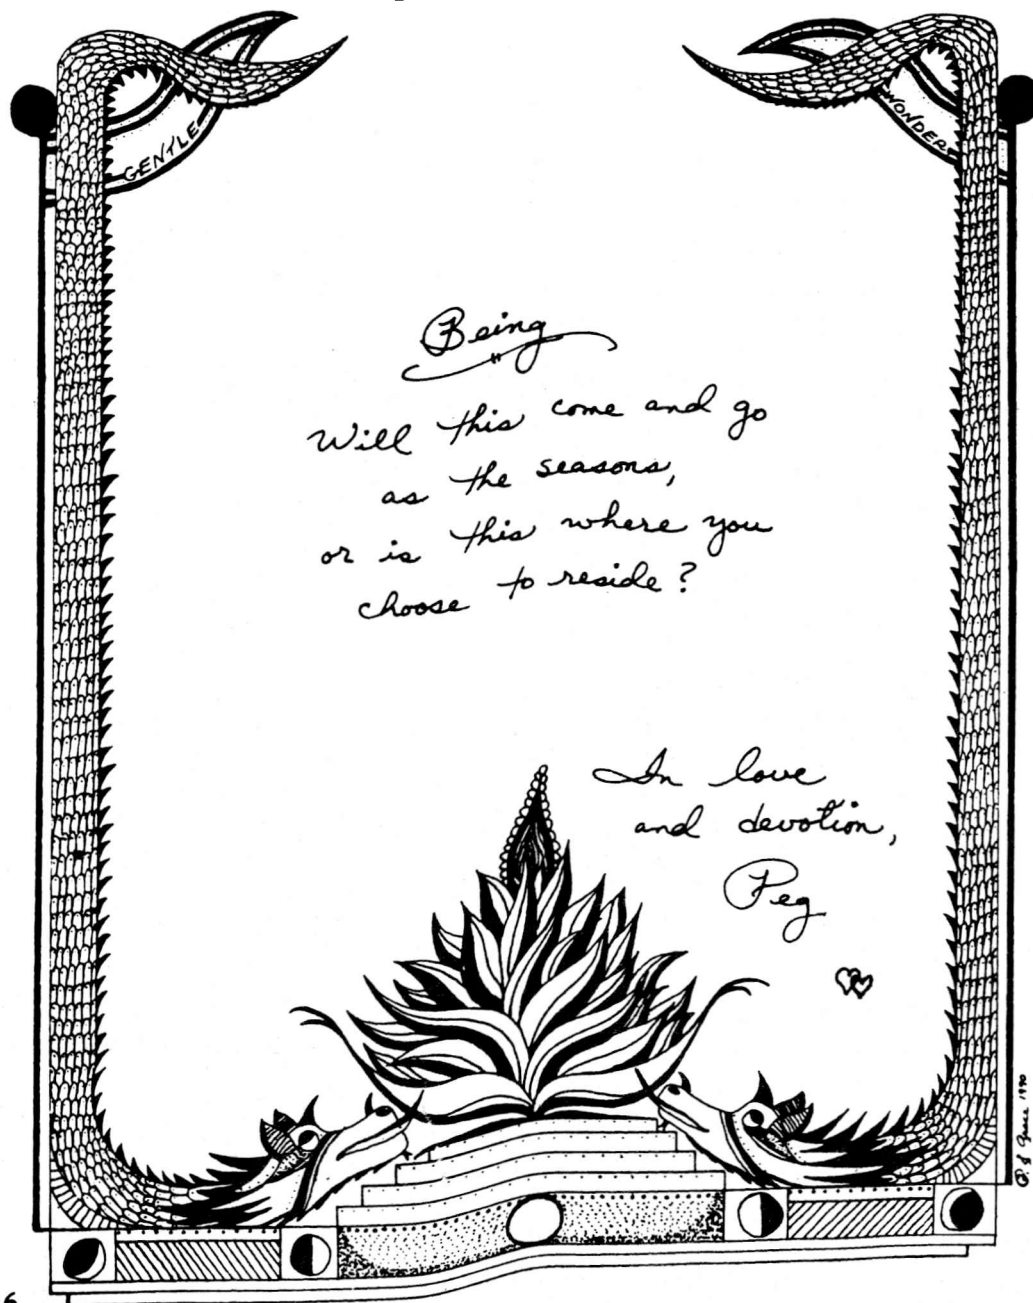 GENTLE
WONDER
Being
Will this come and go
as the seasons,
or is this where you
choose to reside?
In love
and devotion,
Peg
1990
6